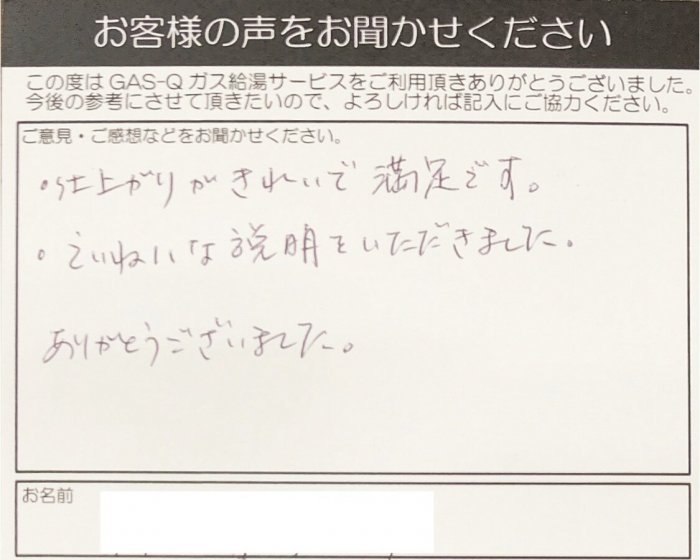 お客様の声をお聞かせください
この度は GAS-Q ガス給湯サービスをご利用頂きありがとうございました。
今後の参考にさせて頂きたいので、よろしければ記入にご協力ください。
ご意見・ご感想などをお聞かせください。
・仕上がりがきれいで満足です。
・ていねいな説明をいただきました。
ありがとうございました。
お名前